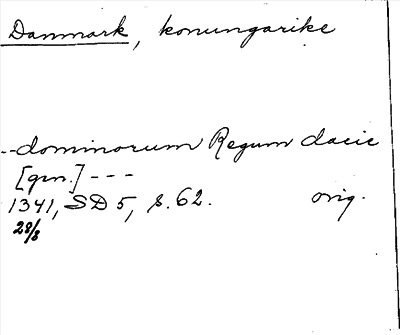 Danmark, konungarike
--dominorum Regum dacie
[grn.] ---
1341, SD 5, s. 62. orig.
28/8